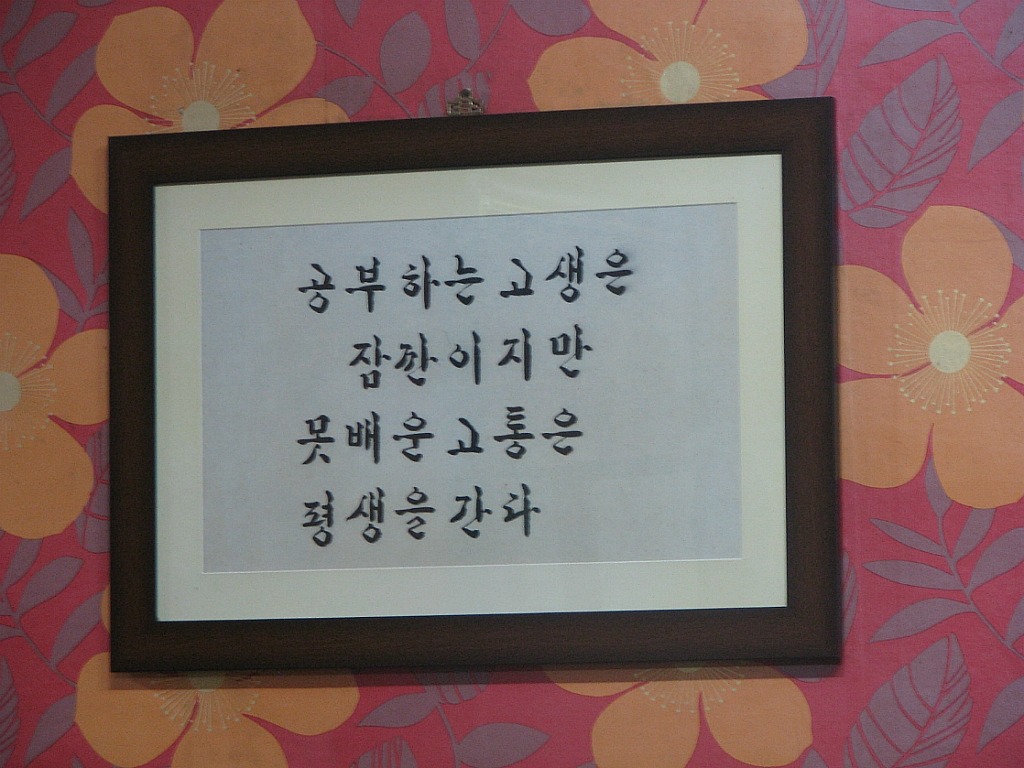 공부하는 고생은
잠깐이지만
못배운 고통은
평생을 간다